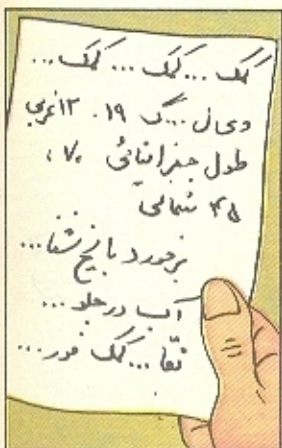 کمک ... کمک ... کمک ...
...گ ۱۹. ۱۲ غربی
طول جغرافیائی ۷۰،
۴۵ شمالی
برخورد با یخ شنا...
آب در جلو ...
تقا ... کمک فور ...